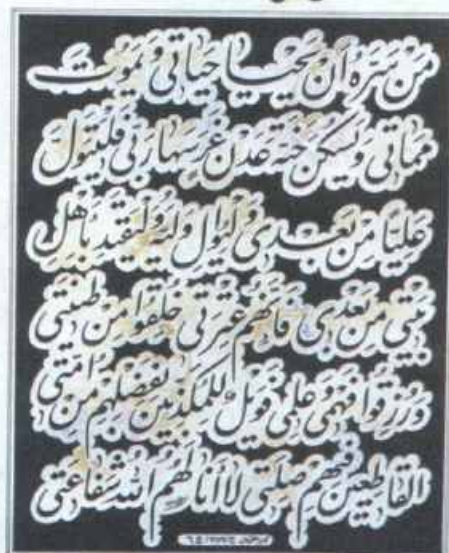 مَنْ سَرَّهُ أَنْ يَحْيَا حَيَاتِي وَيَمُوتَ
مَمَاتِي وَيَسْكُنَ جَنَّةَ عَدْنٍ غَرَسَهَا رَبِّي فَلْيَتَوَلَّ
عَلِيًّا مِنْ بَعْدِي وَلْيُوَالِ وَلِيَّهُ وَلْيَقْتَدِ بِأَهْلِ
بَيْتِي مِنْ بَعْدِي فَإِنَّهُمْ عِتْرَتِي خُلِقُوا مِنْ طِينَتِي
وَرُزِقُوا فَهْمِي وَعِلْمِي فَوَيْلٌ لِلْمُكَذِّبِينَ بِفَضْلِهِمْ مِنْ أُمَّتِي
الْقَاطِعِينَ فِيهِمْ صِلَتِي لَا أَنَالَهُمُ اللهُ شَفَاعَتِي